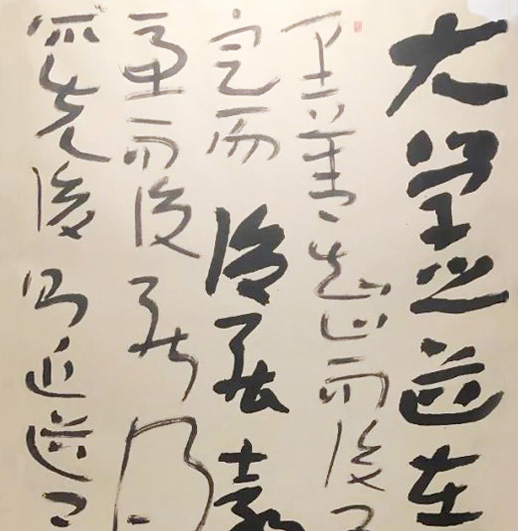 大學之道在
至善知止而後
定而後能
慮而後能
所先後則近道